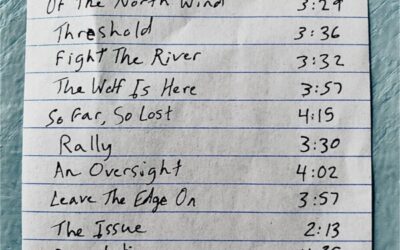 Of The North Wind 3:29
Threshold 3:36
Fight The River 3:32
The Wolf Is Here 3:57
So Far, So Lost 4:15
Rally 3:30
An Oversight 4:02
Leave The Edge On 3:57
The Issue 2:13